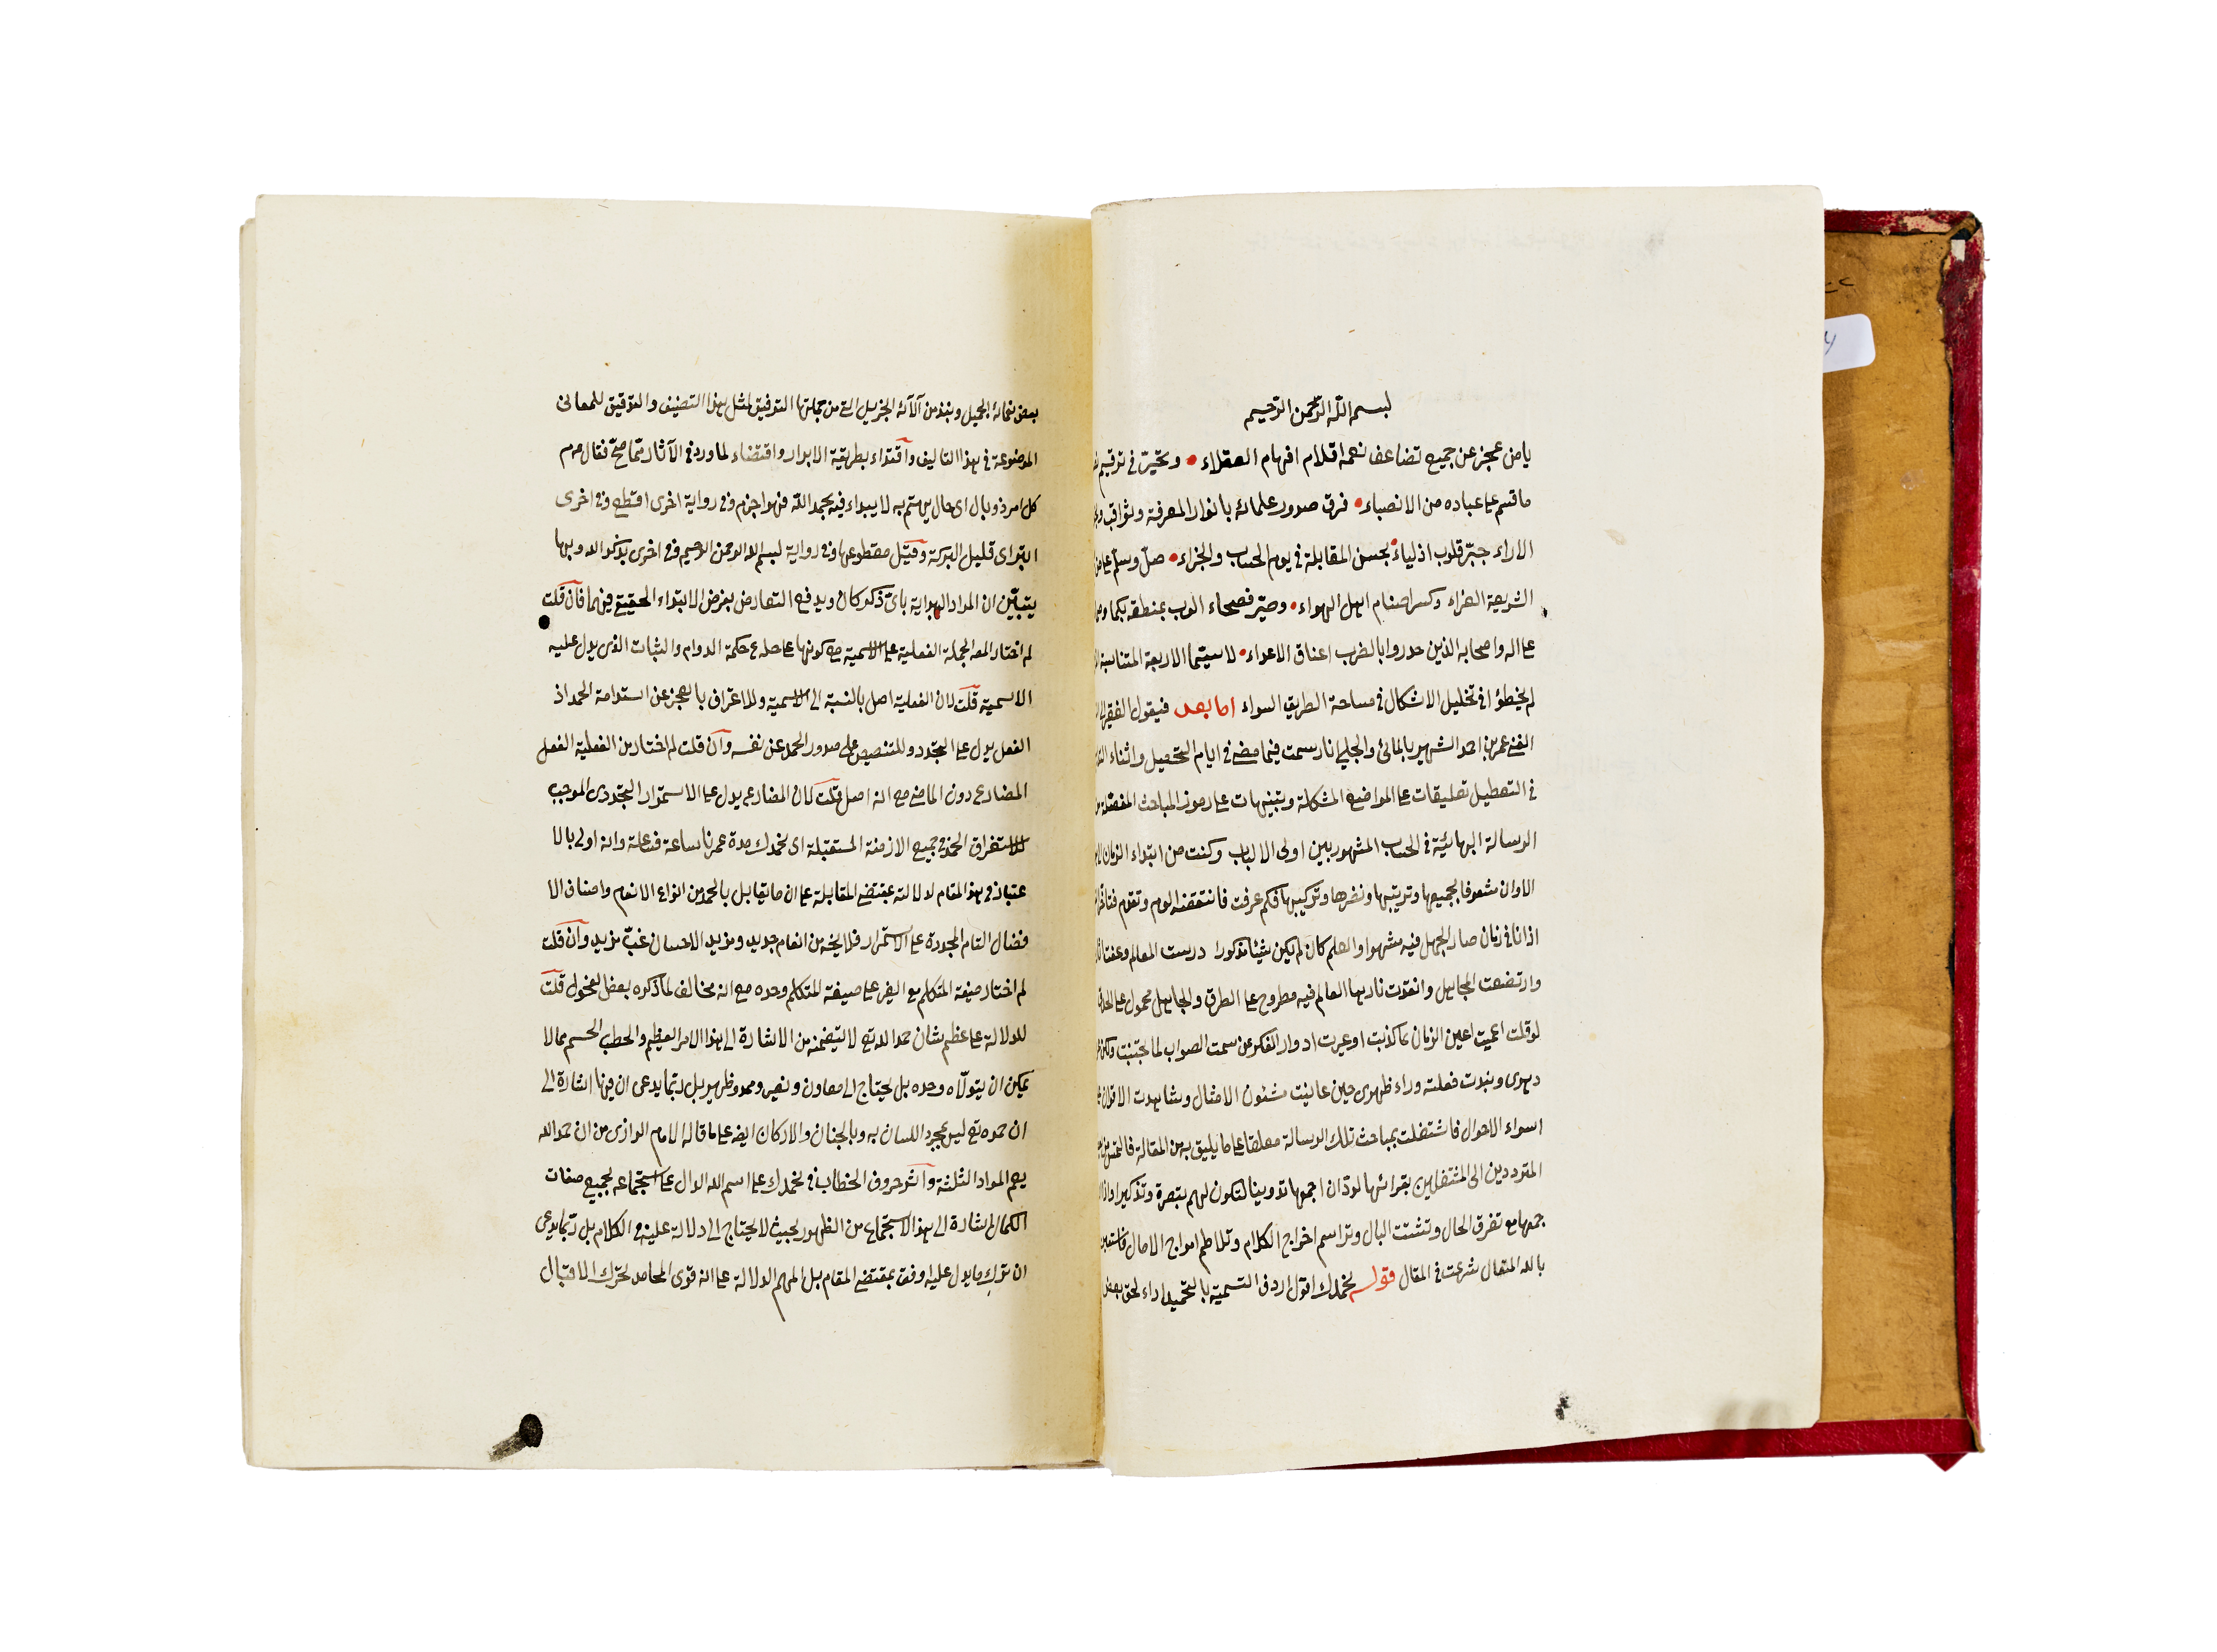 بسم الله الرحمن الرحيم
يا من عجز عن جميع تضاعف نعمه اقلام افهام العقلاء • وتحيّر في ترقيم
ما قسم على عباده من الانصباء • فرق صدور علمائه بانوار المعرفة وثواقب
الاراء جبّر قلوب اذلياءه بحسن المقابلة في يوم الحساب والجزاء • صلّ وسلّم على من
الشريعة الغراء وكسر اصنام اهل الهواء • وصيّر فصحاء العرب بمنطقه بكما
على اله واصحابه الذين حدروا بالضرب اعناق الاعداء • لا سيّما الاربعة المتناسبة
لم يخطؤا في تخليل الاشكال في مساحة الطريق السواء اما بعد فيقول الفقير الى
الغني عمر بن احمد الشهير بالمائى والجلي انا رسمت فيما مضى في ايام التحصيل واثناء
في التعطيل تعليقات على المواضع المشكلة وتنبيهات على رموز المباحث المفصلة
الرسالة البهائيّة في الحساب المشهور بين اولى الالباب وكنت من ابتداء الزمان
الاوان مشعوفا بجميعها وترتيبها ونضرها وتركيبها فكم عرفت فانتقضه الهم وتقدم
اذ انا في زمان صار الجهل فيه مشهوا والعلم كان لم يكن شيئا مذكورا درست المعالم وعفت
وارتضعت المجاهل وانقدت نارها العالم فيه مطروح على الطرق والجاهل محمول على
لو قلت اعميت اعين الزمان ما كذبت او عيرت ادوار الفكر عن سمت الصواب لما
دهرى ونبدت فعلته وراء ظهرى حين عاينت شئون الامثال وشاهدت الاقران
اسواء الاحوال فاشتغلت بمباحث تلك الرسالة معلقا على ما يليق به من المقالة
المترددين الى المشتغلين بقرائها لودّ ان اجمعها تدوينا لتكون لهم تبصرة وتذكيرا
جمعها مع تفرق الحال وتشتت البال وتراسم اخراج الكلام وتلاطم امواج الامال
بالله المتعال شرعت في المقال قوله نحمدك اقول اردف التسمية بالتحميد اداء لحق بعض
بعض نعمائه الجميل ونبذ من آلائه الجزيل التي من جملتها التوفيق لمثل هذا التصنيف والتوقيق للمعانى
الموضوعة في هذا التاليف واقتداء بطريقة الابرار واقتضاء لما ورد في الآثار ممّا صحّ فقال عم
كل امر ذو بال اى حال يهتم به لا يبداء فيه بحمد الله فهو اجزم وفي رواية اخرى اقطع وفي اخرى
ابتر اى قليل البركة وقيل مقطوعها وفي رواية بسم الله الرحمن الرحيم وفي اخرى بذكر الله وبها
يتبيّن ان المراد البداية باىّ ذكر كان ويدفع التعارض بفرض الابتداء الحقيقي فيهما فان قلت
لم اختار المصه الجملة الفعلية على الاسمية مع كونها على حكمة الدوام والثبات الذى يدل عليه
الاسمية قلت لان الفعلية اصل بالنسبة الى الاسمية وللاعتراف بالعجز عن استدامة الحمد اذ
الفعل يدل على التجدد وللتنصيص على صدور الحمد عن نفسه وان قلت لم اختار من الفعلية الفعل
المضارع دون الماضى مع انه اصل قلت لان المضارع يدل على الاستمرار التجددى الموجب
للاستغراق الحمد في جميع الازمنة المستقبلة اى نحمدك مدة عمرنا ساعة فساعة وانه اولى بالا
عتبار في هذا المقام لدلالته بمقتضى المقابلة على ان ما يقابل بالحمد من انواع الانعام واصناف الا
فضال التام المجددة على الاستمرار فلا يخه من انعام جديد ومزيد الاحسان غبّ مزيد وان قلت
لم اختار صيغة المتكلم مع الغير على صيغة المتكلم وحده مع انه مخالف لما ذكره بعض الفحول قلت
للدلالة على عظم شان حمد الله تع لا ليتضمنه من الاشارة الى هذا الامر العظيم والخطب الجسم مما لا
يمكن ان يتولّاه وحده بل يحتاج الى معاون ونصير وممد وظهير بل ربّما يدعى ان فيها اشارة الى
ان حمده تع ليس بمجرد اللسان به وبالجنان والاركان ايضه على ما قاله الامام الرازى من ان حمد الله
يعم المواد الثلثة واثر حروف الخطاب في نحمدك على اسم الله الدال على استجماعه لجميع صفات
الكمال اشارة الى هذا الاستجماع من الظهور بحيث لا يحتاج الى دلالة عليه في الكلام بل ربّما يدعى
ان ترك ما يدل عليه اوفق بمقتضى المقام بل المهم الدلالة على انه قوى المحامد لحرّك الاقبال